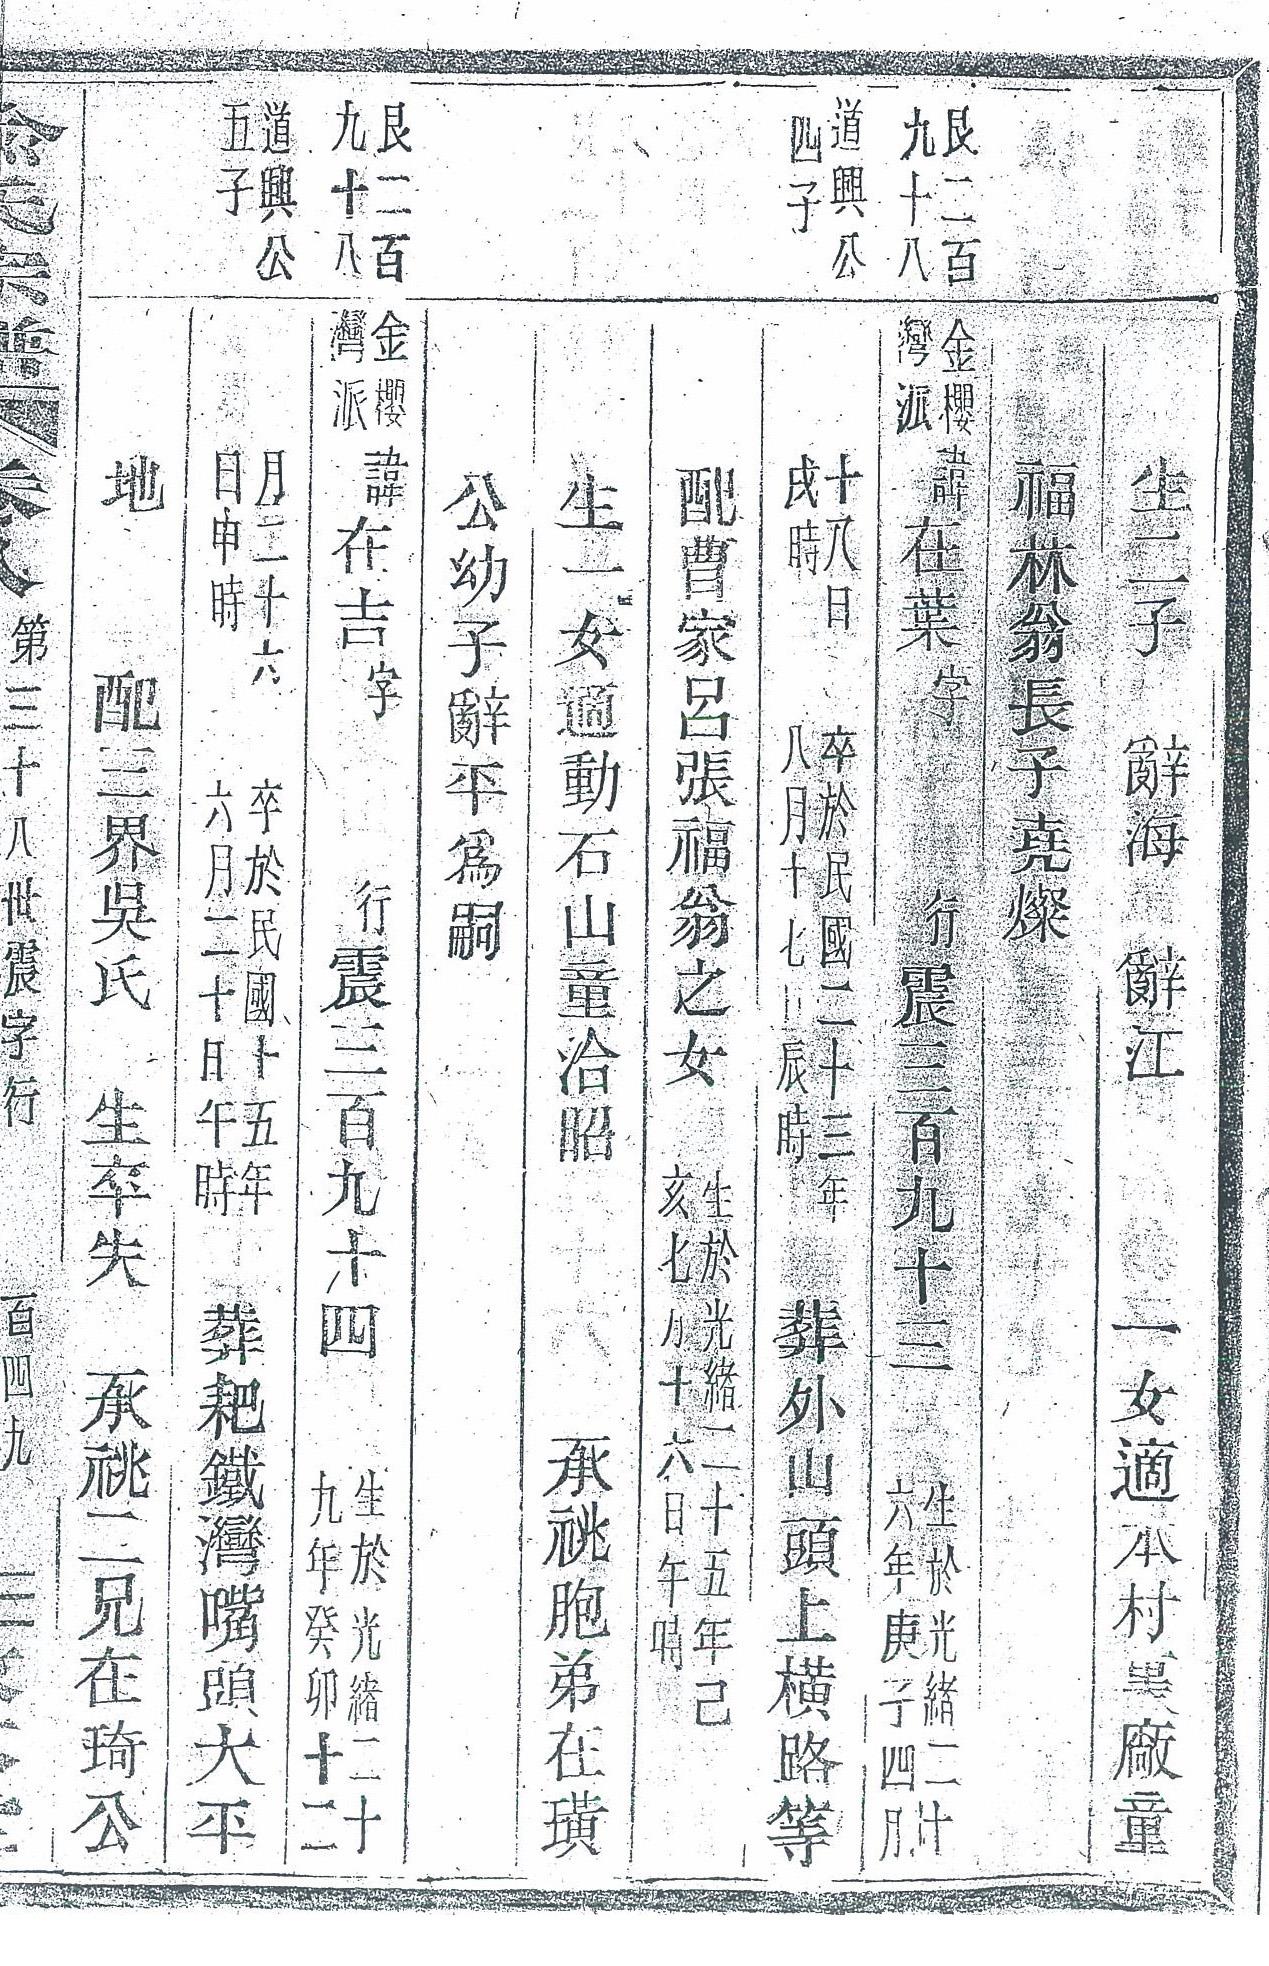 生二子 辭海 辭江 一女適本村 廠童
福林翁長子堯燦
艮二百
九十八
金櫻
灣派
諱在葉字 行震三百九十三
生於光緒二十
六年庚子四月
道興公
四子
十八日
戌時
卒於民國二十三年
八月十七日辰時
葬外山頭上橫路等
配曹家呂張福翁之女
生於光緒二十五年己
亥七月十六日午時
生一女適動石山童洽昭 承祧胞弟在璜
公幼子辭平為嗣
艮二百
九十八
金櫻
灣派
諱在吉字 行震三百九十四
生於光緒二十
九年癸卯十二
道興公
五子
月二十六
日申時
卒於民國十五年
六月二十日午時
葬耙鐵灣嘴頭大平
地 配三界吳氏 生卒失 承祧二兄在琦公
氏宗譜 卷 第三十八世震字行 百四九